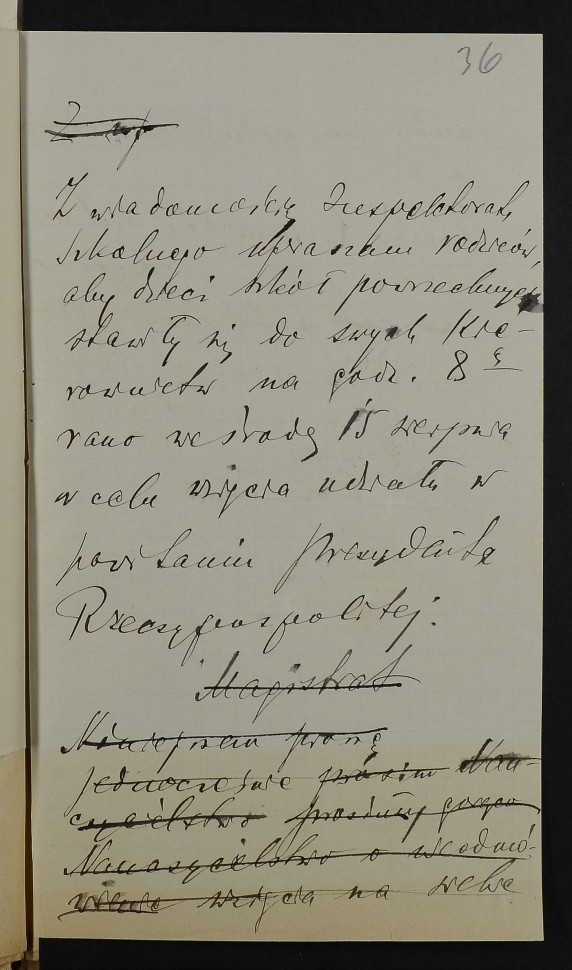 36
Z wiadomością Inspektoratu
Szkolnego upraszam rodziców,
aby dzieci szkół powszechnych
stawiły się do swych Kie-
rownictw na godz. 8ę
rano we środę 15 sierpnia
w celu wzięcia udziału w
powitaniu Prezydenta
Rzeczypospolitej.
Magistrat
Niniejszem proszę
jednocześnie proszę Nau-
czycielstwo prosimy gorąco
Nauczycielstwo o
wzięcia na siebie